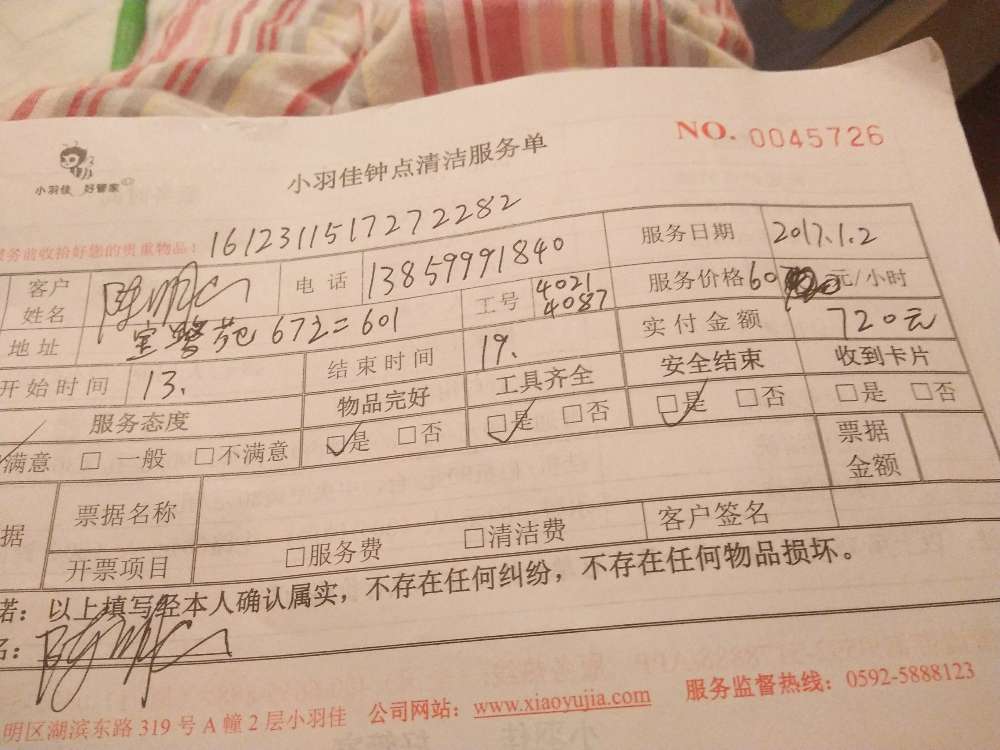 小羽佳 好管家
小羽佳钟点清洁服务单
NO. 0045726
务前收拾好您的贵重物品！ 1612311517272282
客户姓名 电话 13859991840 服务日期 2017.1.2
工号 4021 4087 服务价格 60 元/小时
地址 601 实付金额 720元
开始时间 13. 结束时间 19. 安全结束 收到卡片
服务态度 物品完好 工具齐全 □是 □否 □是 □否
满意 □ 一般 □不满意 □是 □否 □是 □否 票据金额
据 票据名称
开票项目 □服务费 □清洁费 客户签名
诺：以上填写经本人确认属实，不存在任何纠纷，不存在任何物品损坏。
名：
明区湖滨东路 319 号 A 幢 2 层小羽佳 公司网站：www.xiaoyujia.com 服务监督热线：0592-5888123